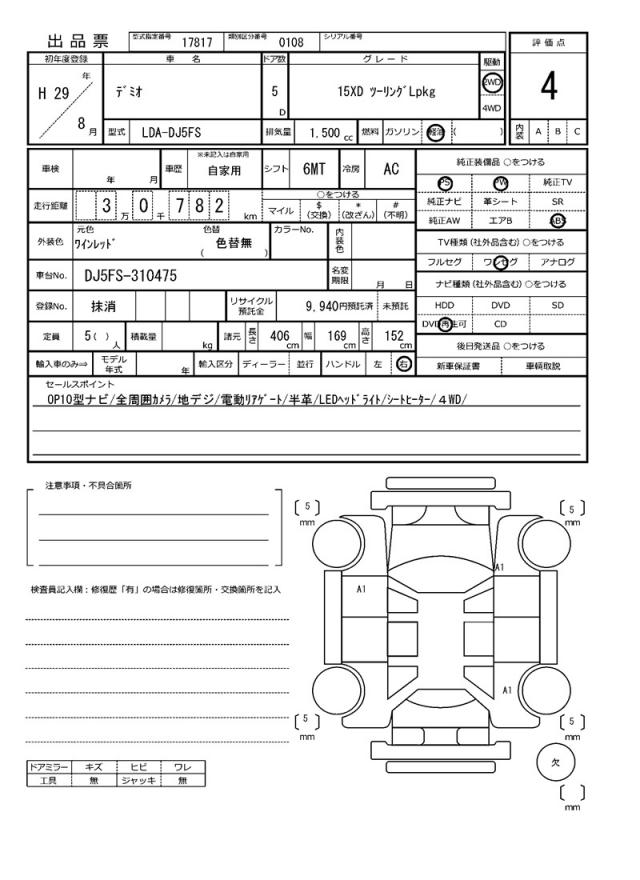 出品票 型式指定番号 17817 類別区分番号 0108 シリアル番号
評価点
初年度登録 車名 ドア数 グレード 駆動
H 29 年 8 月 ﾃﾞﾐｵ 5 D 15XD ﾂｰﾘﾝｸﾞLpkg 2WD 4WD
4
型式 LDA-DJ5FS 排気量 1,500 cc 燃料 ガソリン 軽油 ( )
内装 A B C
車検 年 月 車歴 ※未記入は自家用 自家用 シフト 6MT 冷房 AC
走行距離 3 万 0 千 7 8 2 km
○をつける
マイル $ (交換) * (改ざん) # (不明)
外装色 元色 ﾜｲﾝﾚｯﾄﾞ 色替 ( 色替無 ) カラーNo. 内装色
車台No. DJ5FS-310475 名変期限 月 日
登録No. 抹消 リサイクル預託金 9,940円預託済 未預託
定員 5 ( ) 人 積載量 kg 諸元 長さ 406 cm 幅 169 cm 高さ 152 cm
輸入車のみ⇒ モデル年式 年 輸入区分 ディーラー 並行 ハンドル 左 右
純正装備品 ○をつける
PS PW 純正TV
純正ナビ 革シート SR
純正AW エアB ABS
TV種類 (社外品含む) ○をつける
フルセグ ワンセグ アナログ
ナビ種類 (社外品含む) ○をつける
HDD DVD SD
DVD再生可 CD
後日発送品 ○をつける
新車保証書 車輌取説
セールスポイント
OP10型ナビ/全周囲ｶﾒﾗ/地デジ/電動ﾘｱｹﾞｰﾄ/半革/LEDﾍｯﾄﾞﾗｲﾄ/ｼｰﾄﾋｰﾀｰ/４WD/
注意事項・不具合箇所
検査員記入欄：修復歴「有」の場合は修復箇所・交換箇所を記入
ドアミラー キズ ヒビ ワレ
工具 無 ジャッキ 無
〔 5 〕 mm
〔 5 〕 mm
A1
A1
A1
〔 5 〕 mm
〔 5 〕 mm
欠
〔 〕 mm